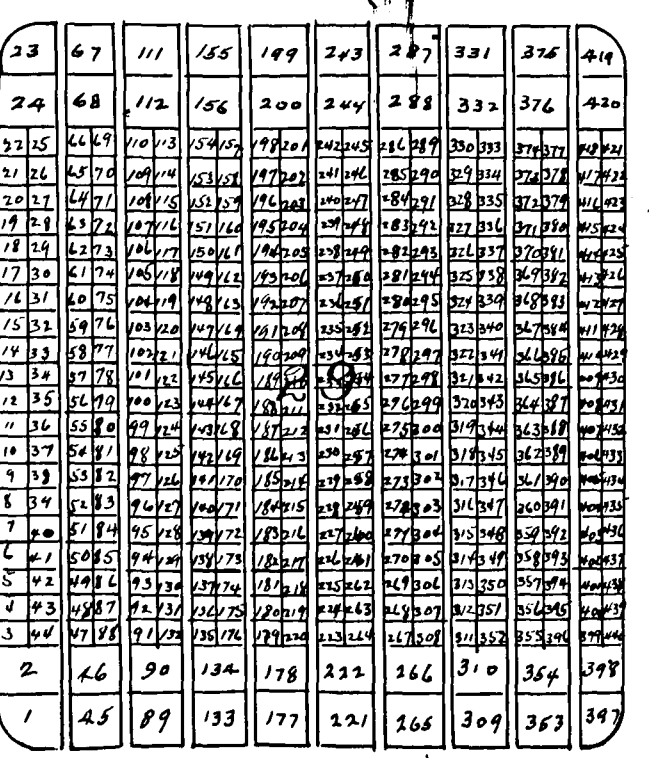 23 67 111 155 199 243 287 331 375 419
24 68 112 156 200 244 288 332 376 420
22 25 66 69 110 113 154 157 198 201 242 245 286 289 330 333 374 377 418 421
21 26 65 70 109 114 153 158 197 202 241 246 285 290 329 334 373 378 417 422
20 27 64 71 108 115 152 159 196 203 240 247 284 291 328 335 372 379 416 423
19 28 63 72 107 116 151 160 195 204 239 248 283 292 327 336 371 380 415 424
18 29 62 73 106 117 150 161 194 205 238 249 282 293 326 337 370 381 414 425
17 30 61 74 105 118 149 162 193 206 237 250 281 294 325 338 369 382 413 426
16 31 60 75 104 119 148 163 192 207 236 251 280 295 324 339 368 383 412 427
15 32 59 76 103 120 147 164 191 208 235 252 279 296 323 340 367 384 411 428
14 33 58 77 102 121 146 165 190 209 234 253 278 297 322 341 366 385 410 429
13 34 57 78 101 122 145 166 189 210 254 277 298 321 342 365 386 409 430
29
12 35 56 79 100 123 144 167 188 211 232 255 276 299 320 343 364 387 408 431
11 36 55 80 99 124 143 168 187 212 231 256 275 300 319 344 363 388 407 432
10 37 54 81 98 125 142 169 186 213 230 257 274 301 318 345 362 389 406 433
9 38 53 82 97 126 141 170 185 214 229 258 273 302 317 346 361 390 405 434
8 39 52 83 96 127 140 171 184 215 228 259 272 303 316 347 360 391 404 435
7 40 51 84 95 128 139 172 183 216 227 260 271 304 315 348 359 392 403 436
6 41 50 85 94 129 138 173 182 217 226 261 270 305 314 349 358 393 402 437
5 42 49 86 93 130 137 174 181 218 225 262 269 306 313 350 357 394 401 438
4 43 48 87 92 131 136 175 180 219 224 263 268 307 312 351 356 395 400 439
3 44 47 88 91 132 135 176 179 220 223 264 267 308 311 352 355 396 399 440
2 46 90 134 178 222 266 310 354 398
1 45 89 133 177 221 265 309 353 397